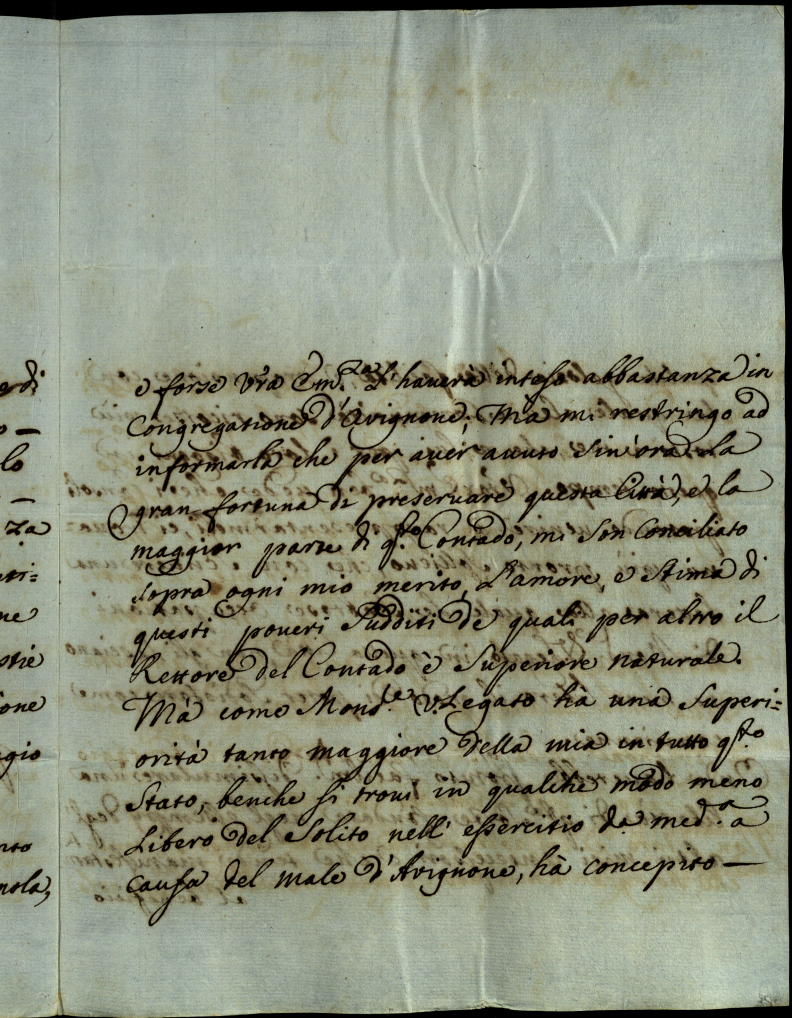 e forse Vr̃a Em.za l'haverà inteso abbastanza in
Congregatione d'Avignone; Mà mi restringo ad
informarla che per aver avuto sin'ora la
gran fortuna di preservare questa Città, e la
maggior parte di q.sto Contado, mi son conciliato
sopra ogni mio merito, l'amore, e stima di
questi poveri sudditi de quali per altro il
Rettore del Contado è superiore naturale.
Mà come Mons.re V.Legato hà una superi=
orità tanto maggiore della mia in tutto q.sto
Stato, benche si trovi in qualche modo meno
libero del solito nell' essercitio da med.a a
causa del male d'Avignone, hà concepito —
di
—
lo
—
za
ti=
ne
stie
ione
gio
nto
nola,